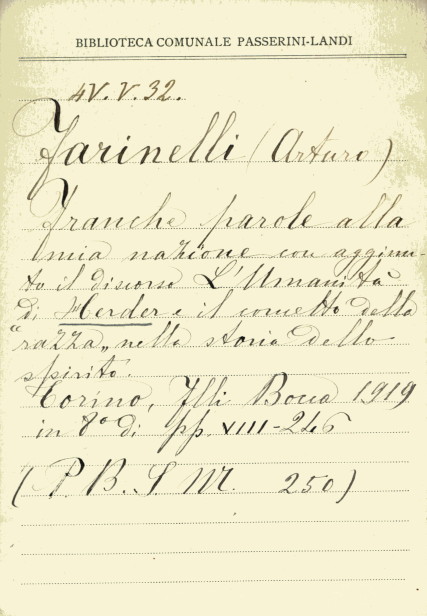 BIBLIOTECA COMUNALE PASSERINI-LANDI
4V.V.32.
Farinelli (Arturo)
Franche parole alla
mia nazione con aggiun-
to il discorso L'Umanità
di Herder e il concetto della
"razza„ nella storia dello
spirito.
Torino, Flli Bocca 1919
in 8° di pp. VIII-246
(P. B. S. M. 250)